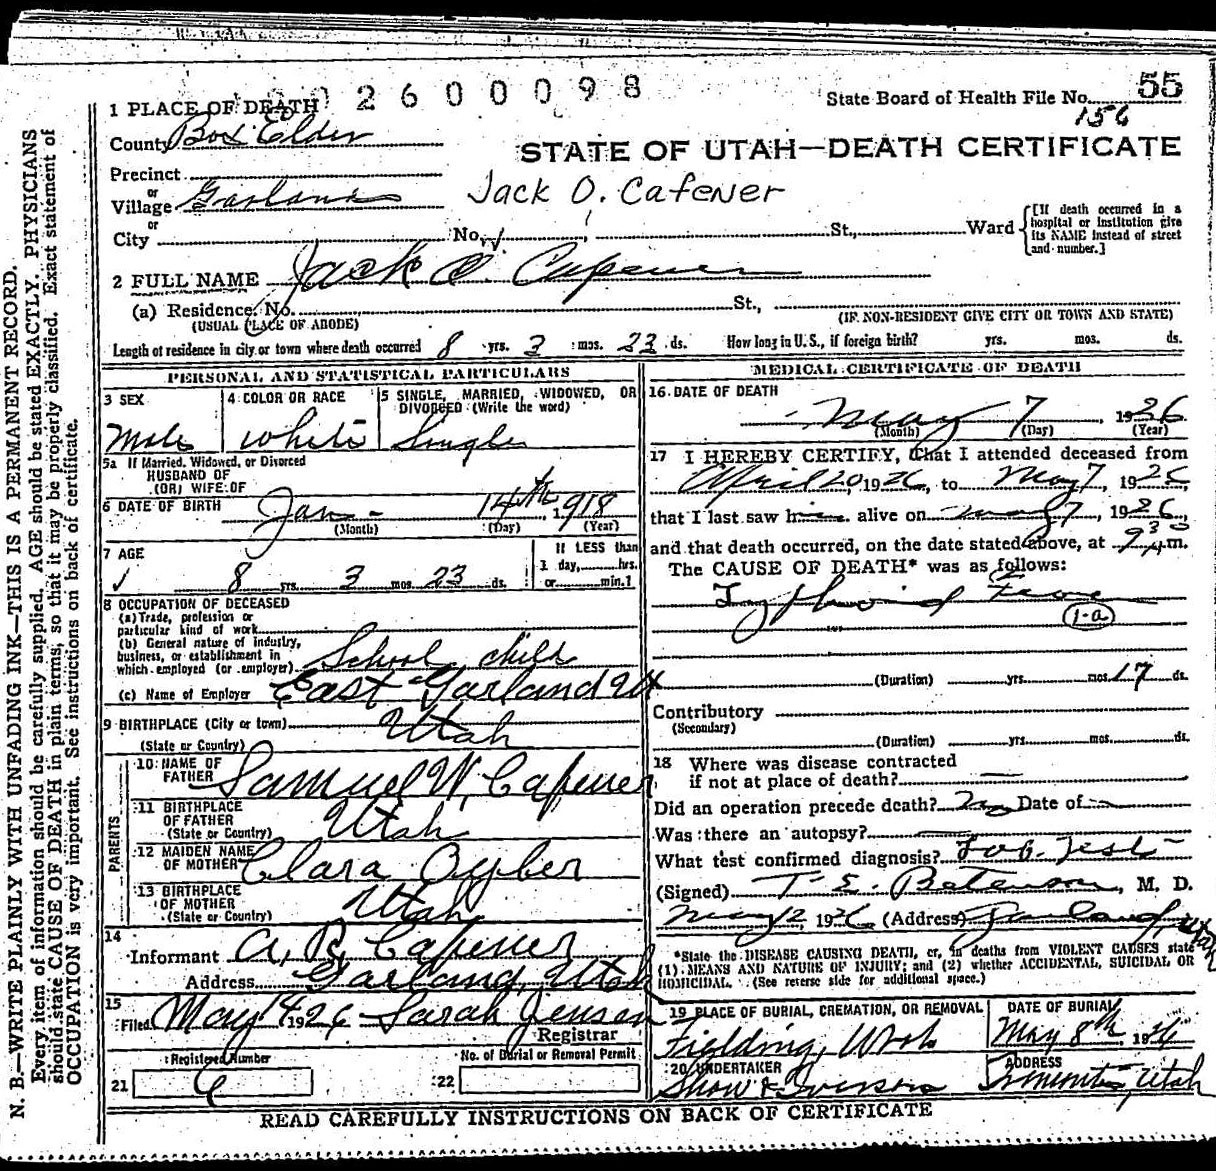 2600098
State Board of Health File No. 55
156
1 PLACE OF DEATH
County Box Elder
STATE OF UTAH—DEATH CERTIFICATE
Precinct
or
Village Garland
Jack O. Cafener
or
City No. St., Ward
[If death occurred in a hospital or institution give its NAME instead of street and number.]
2 FULL NAME Jack O. Capener
(a) Residence. No. St.,
(USUAL PLACE OF ABODE) (IF NON-RESIDENT GIVE CITY OR TOWN AND STATE)
Length of residence in city or town where death occurred 8 yrs. 3 mos. 23 ds. How long in U.S., if foreign birth? yrs. mos. ds.
PERSONAL AND STATISTICAL PARTICULARS
3 SEX 4 COLOR OR RACE 5 SINGLE, MARRIED, WIDOWED, OR DIVORCED (Write the word)
Male White Single
5a If Married, Widowed, or Divorced
HUSBAND OF
(OR) WIFE OF
6 DATE OF BIRTH Jan- 14th, 1918
(Month) (Day) (Year)
7 AGE
8 yrs. 3 mos. 23 ds.
If LESS than
1 day, hrs.
or min.?
8 OCCUPATION OF DECEASED
(a) Trade, profession or
particular kind of work
(b) General nature of industry,
business, or establishment in
which employed (or employer) School child
(c) Name of Employer East Garland Ut
9 BIRTHPLACE (City or town)
(State or Country) Utah
PARENTS
10 NAME OF
FATHER Samuel W. Capener
11 BIRTHPLACE
OF FATHER
(State or Country) Utah
12 MAIDEN NAME
OF MOTHER Clara
13 BIRTHPLACE
OF MOTHER
(State or Country) Utah
14
Informant A. R. Capener
Address Garland, Utah
15
Filed May 14 1926 Sarah Jensen
Registrar
Registered Number No. of Burial or Removal Permit
21 6 22
MEDICAL CERTIFICATE OF DEATH
16 DATE OF DEATH
May 7, 1926
(Month) (Day) (Year)
17 I HEREBY CERTIFY, that I attended deceased from
April 20, 1926, to May 7, 1926
that I last saw him alive on May 7, 1926,
and that death occurred, on the date stated above, at 9 30 m.
The CAUSE OF DEATH* was as follows:
Typhoid Fever
1-a
(Duration) yrs. mos. 17 ds.
Contributory
(Secondary)
(Duration) yrs. mos. ds.
18 Where was disease contracted
if not at place of death? —
Did an operation precede death? No Date of —
Was there an autopsy? —
What test confirmed diagnosis? Lab. Test
(Signed) T. E. Betenson, M. D.
May 12, 1926 (Address) Garland, Utah
*State the DISEASE CAUSING DEATH, or, in deaths from VIOLENT CAUSES state
(1) MEANS AND NATURE OF INJURY; and (2) whether ACCIDENTAL, SUICIDAL OR
HOMICIDAL. (See reverse side for additional space.)
19 PLACE OF BURIAL, CREMATION, OR REMOVAL DATE OF BURIAL
Fielding, Utah May 8th, 1926
20 UNDERTAKER ADDRESS
Shaw & Iverson Tremonton, Utah
READ CAREFULLY INSTRUCTIONS ON BACK OF CERTIFICATE
N. B.—WRITE PLAINLY WITH UNFADING INK—THIS IS A PERMANENT RECORD.
Every item of information should be carefully supplied. AGE should be stated EXACTLY. PHYSICIANS
should state CAUSE OF DEATH in plain terms, so that it may be properly classified. Exact statement of
OCCUPATION is very important. See instructions on back of certificate.